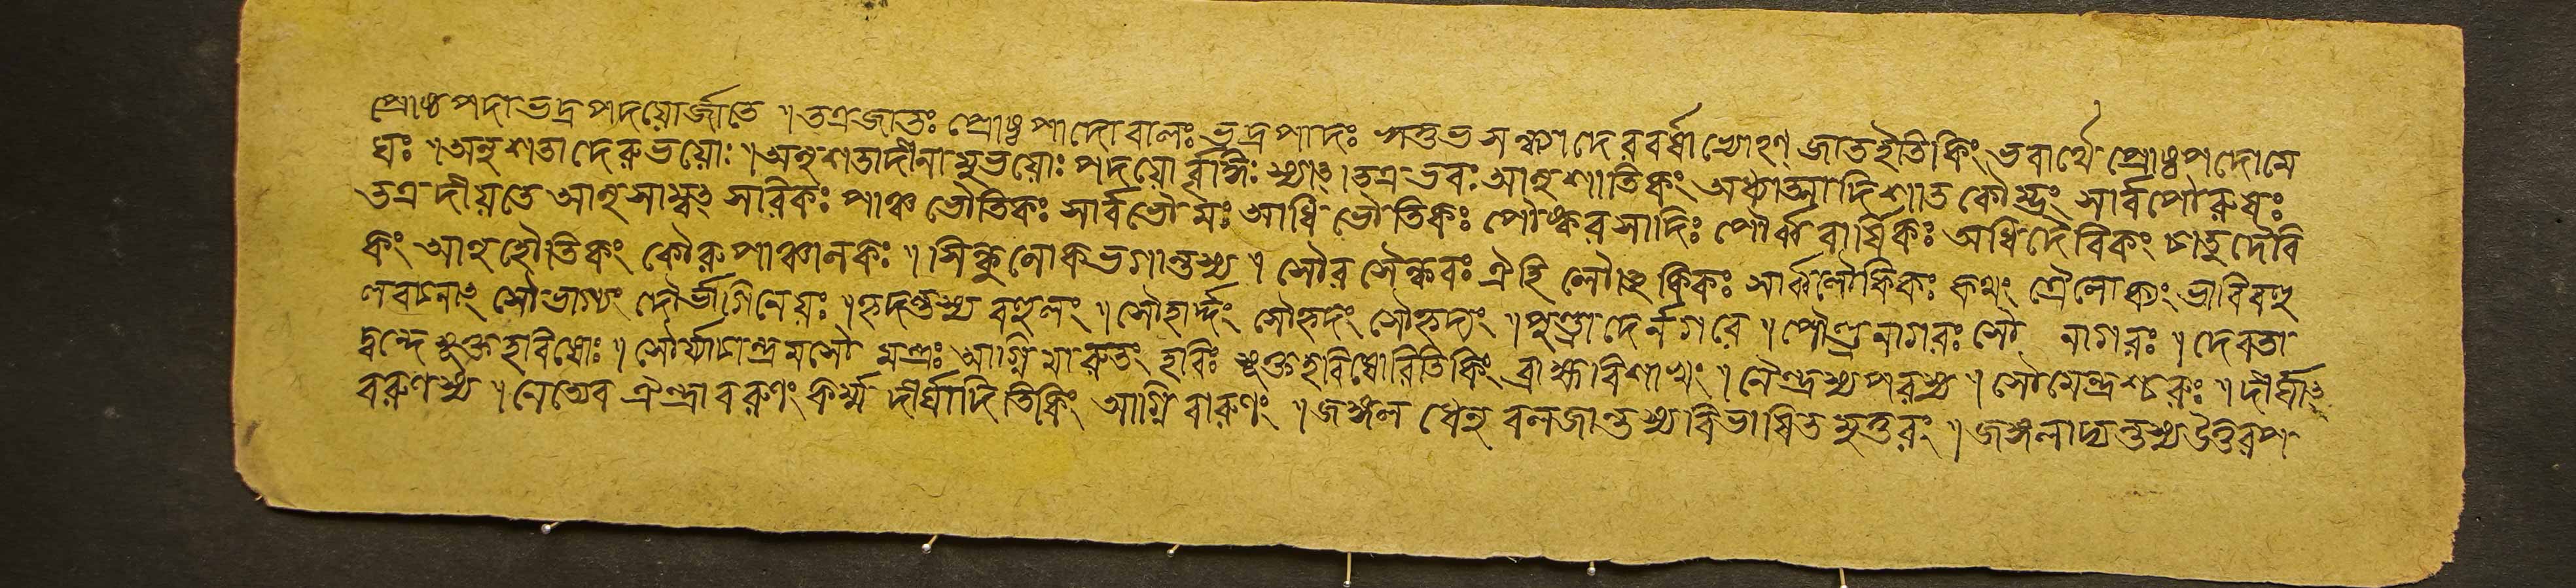 প্রোষ্ঠপদা ভদ্রপদয়োর্জাতে ৷৷ তত্রজাতঃ প্রোষ্ঠপাদোবালঃ ভদ্রপাদঃ ঋতুভ সন্ধ্যাদেরবর্ষাভ্যোহণ্ জাতইতিকিং ভবার্থে প্রোষ্ঠপদোমে
ঘঃ ৷৷ অনুশতাদেরুভয়োঃ ৷৷ অনুশতাদীনামুভয়োঃ পদয়োর্বৃদ্ধিঃ স্যাৎ ৷ তত্রভবঃ আনুশাতিকং অধ্যাত্মাদিশাত কৌম্ভং সার্বপৌরুষঃ
তত্রদীয়তে আনুসাম্বৎসরিকঃ পাঞ্চভৌতিকঃ সার্বভৌমঃ আধিভৌতিকঃ পৌষ্করসাদিঃ পৌর্ব্ববার্ষিকঃ অধিদৈবিকং চাতুর্দৈবি
কিং আনুহৌতিকং কৌরুপাঞ্চালকিঃ ৷৷ সিন্ধুলোকভগান্তস্য ৷৷ সৌরসৈন্ধবঃ ঐহিলৌকিকঃ সার্ব্বলৌকিকঃ কথং ত্রৈলোক্যং ভাবিবহু
লবচনাৎ সৌভাগ্যং দৌর্ভাগিনেয়ঃ ৷৷ হৃদন্তস্য বহুলং ৷৷ সৌহার্দ্দং সৌহৃদং সৌহৃদ্যং ৷৷ পুণ্ড্রাদের্নগরে ৷৷ পৌণ্ড্রনাগরঃ সৌ নাগরঃ ৷৷ দেবতা
দ্বন্দে সূক্তহবিষোঃ ৷৷ সৌর্য্যাচান্দ্রমসৌ মন্ত্রঃ আগ্নিমারুতং হবিঃ সূক্তহবিষোরিতিকিং ব্রাহ্মবিশাখং ৷৷ নেন্দ্রস্যপরস্য ৷৷ সৌমেন্দ্রশ্চরুঃ ৷৷ দীর্ঘাৎ
বরুণস্য ৷৷ নেত্যেব ঐন্দ্রাবরুণং কিম্ম দীর্ঘাদিতিকিং আগ্নিবারুণং ৷৷ জঙ্গল ধেনু বলজান্তস্যবিভাষিতমুত্তরং ৷৷ জঙ্গলাদ্যন্তস্যউত্তরপা